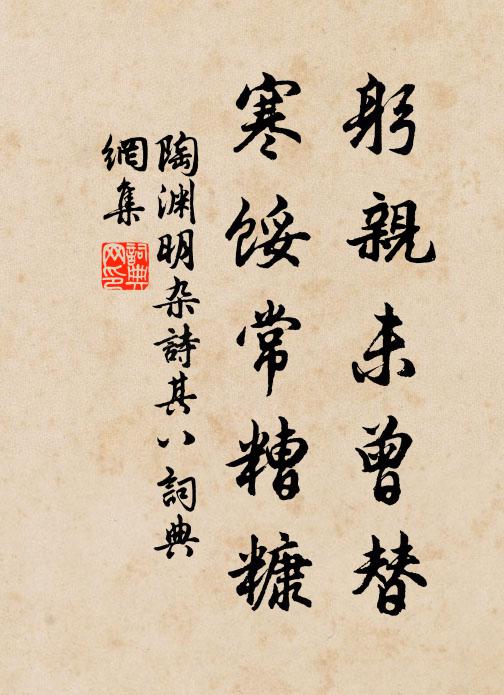 躬親未曾替
寒餒常糟糠
陶渊明杂詩其八詞典
網集
詞典
网印